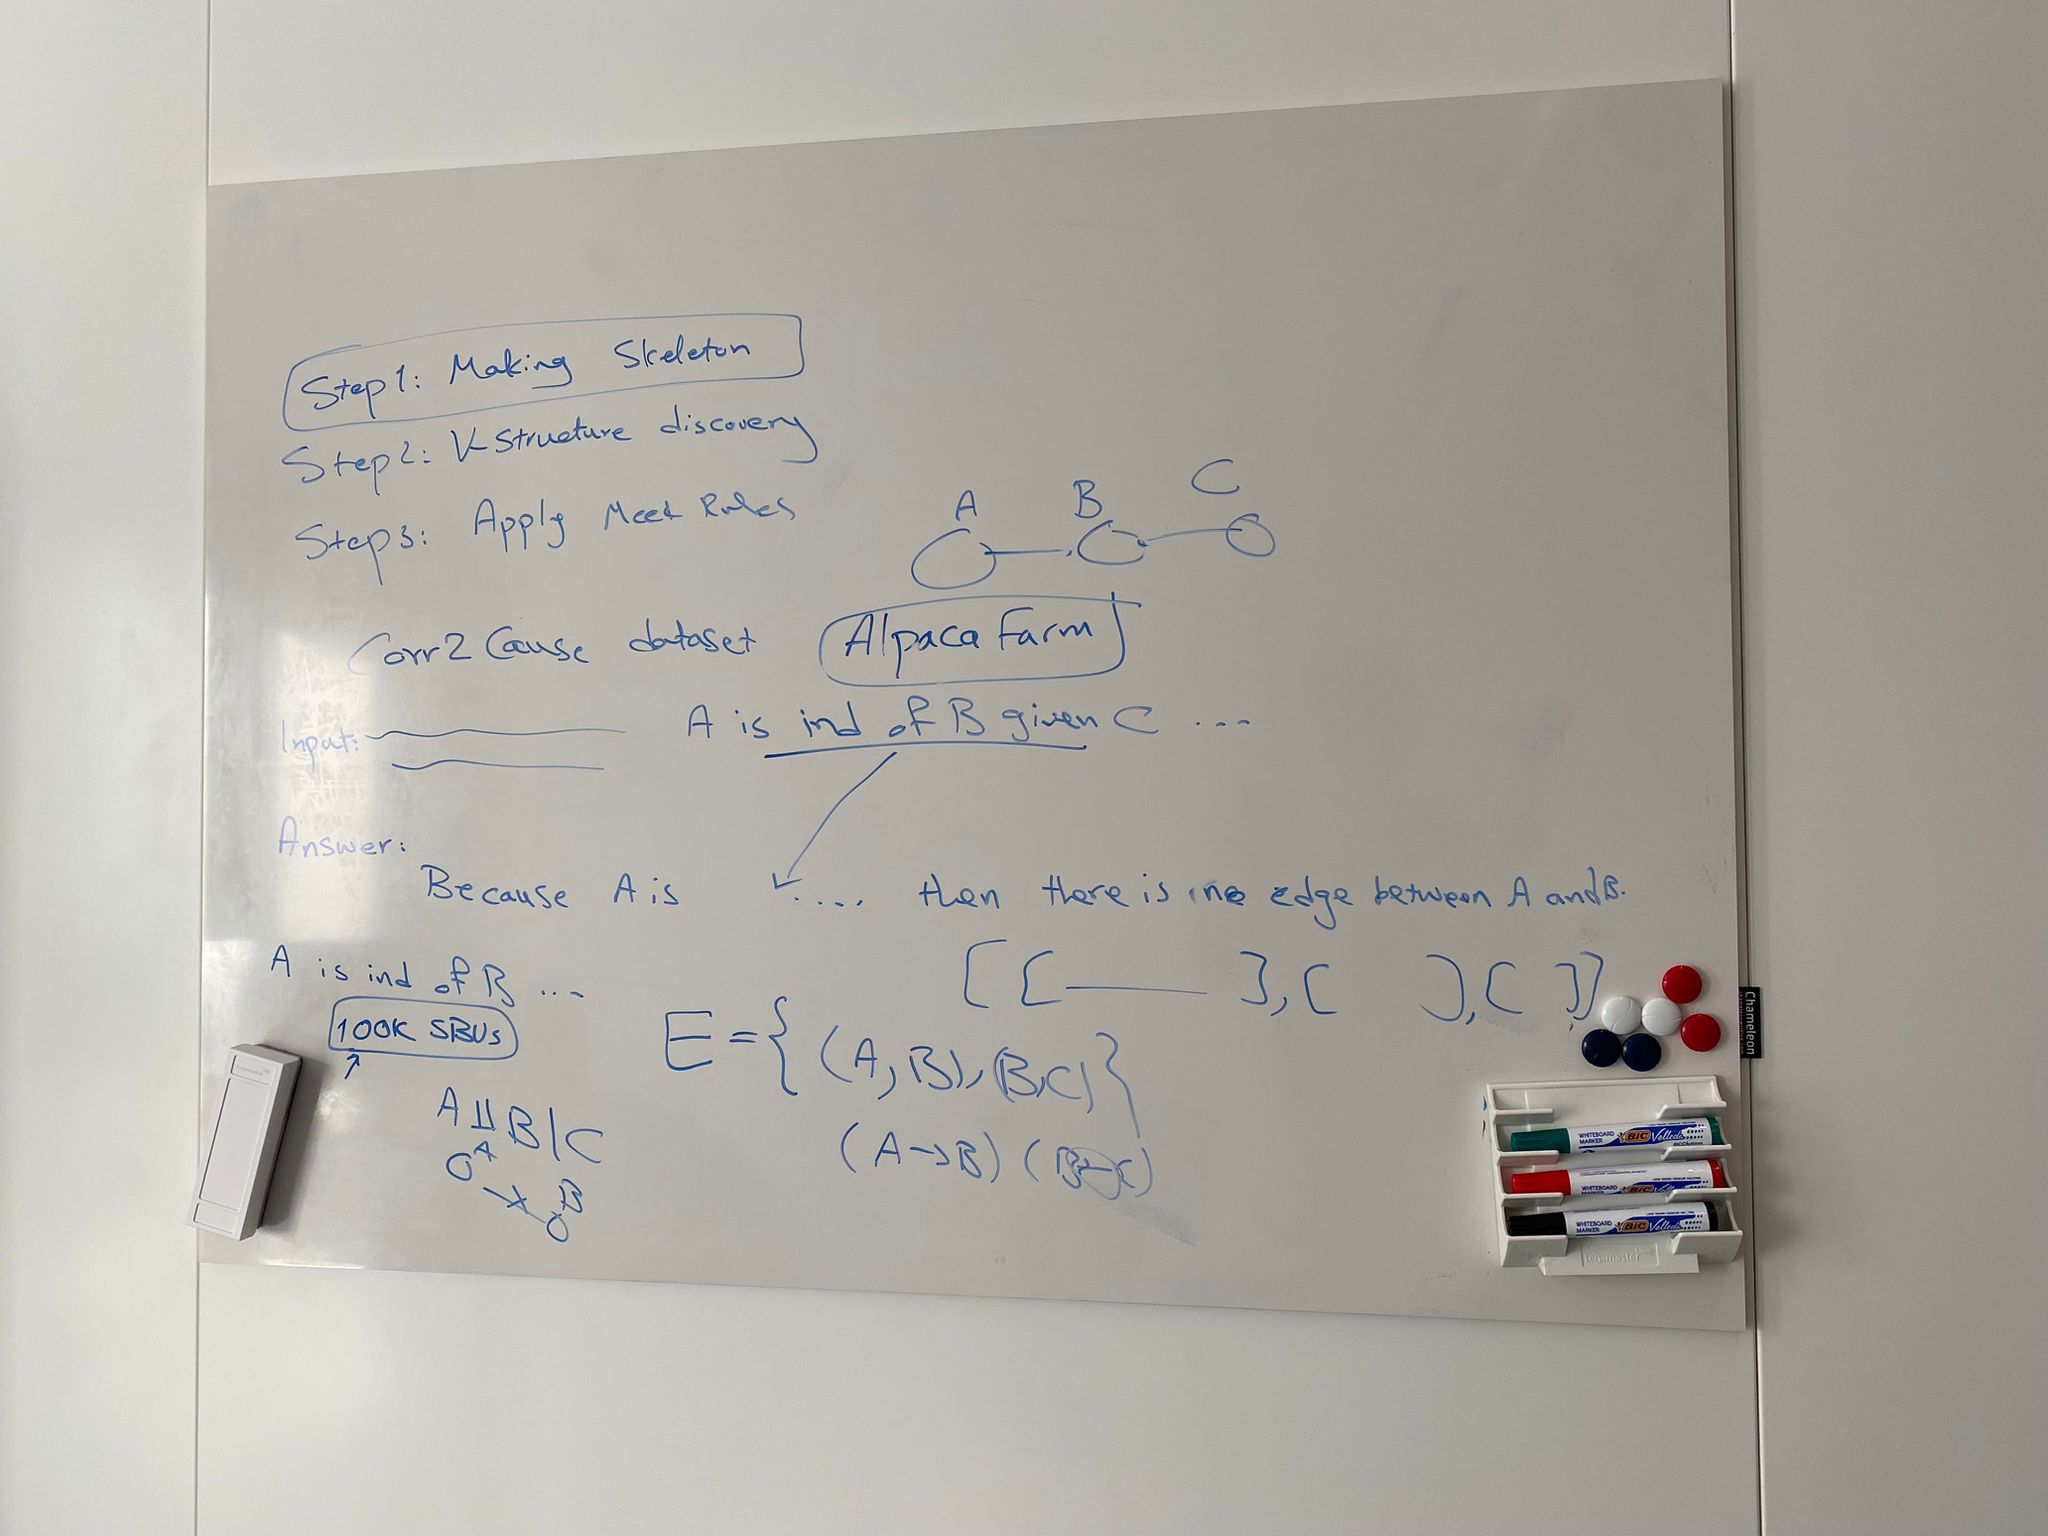 Step1: Making Skeleton
Step2: V-Structure discovery
Step3: Apply Meek Rules
A B C
Corr2Cause dataset Alpaca Farm
Input: A is ind of B given C ...
Answer:
Because A is .... then there is no edge between A and B.
A is ind of B ...
[[ ], [ ], [ ]]
100K SBUs
E = { (A, B), (B, C) }
(A → B) (B - C)
A ⫫ B | C
A
B
Chameleon
legamaster
WHITEBOARD MARKER BIC Velleda
WHITEBOARD MARKER BIC Velleda
WHITEBOARD MARKER BIC Velleda
Legamaster